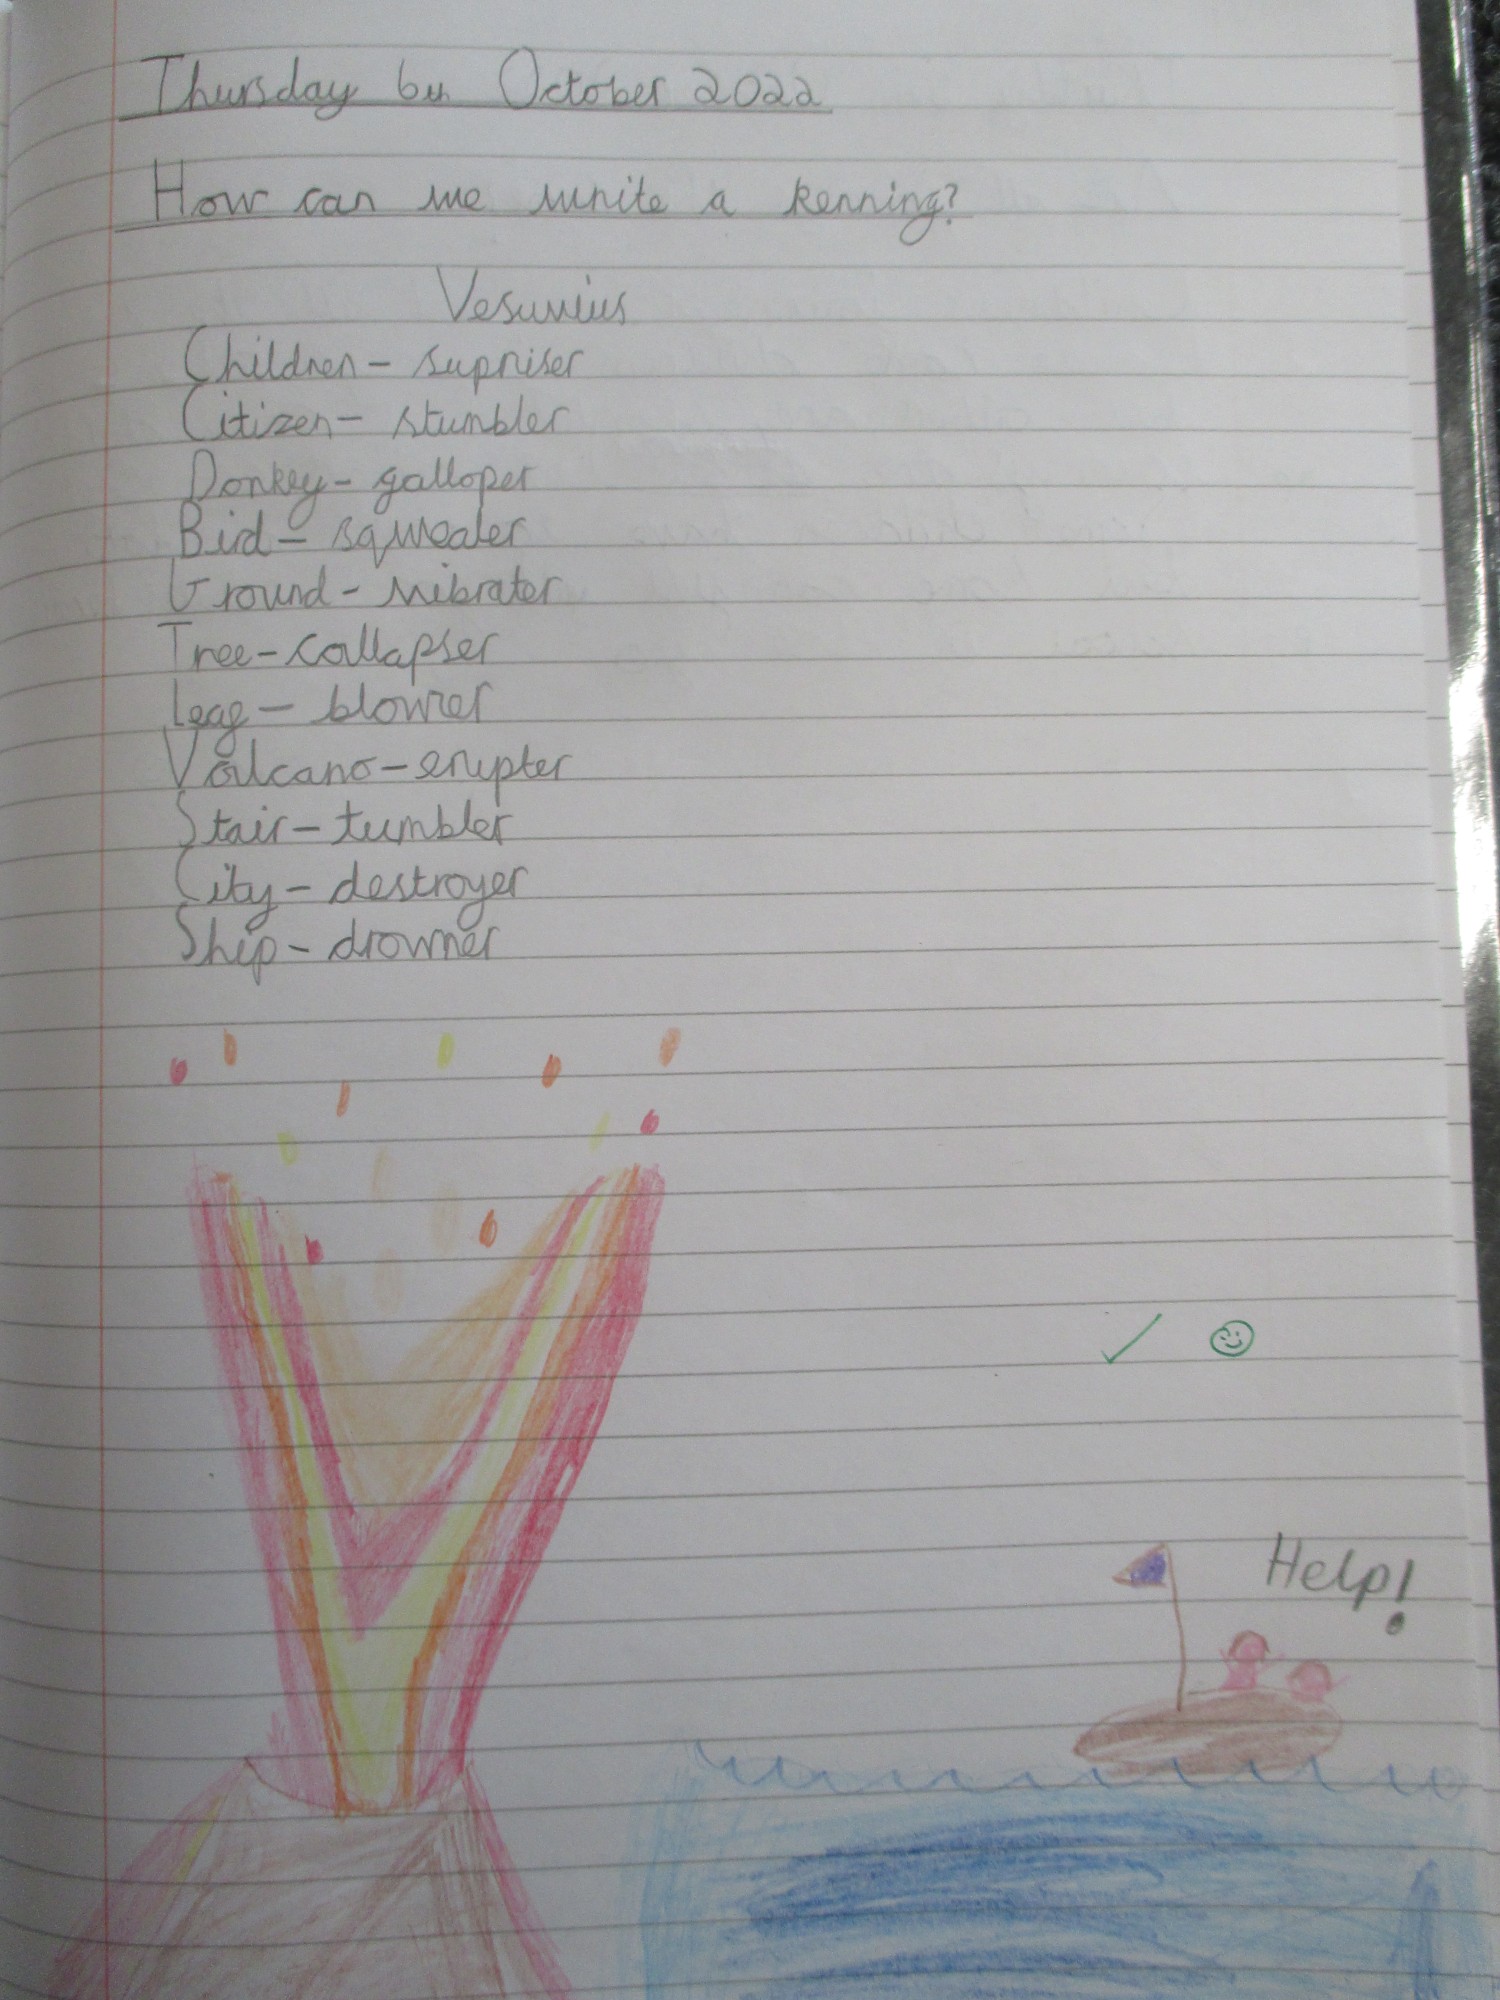 Thursday 6th October 2022
How can we write a kenning?
Vesuvius
Children - supriser
Citizen - stumbler
Donkey - galloper
Bird - squealer
Ground - vibrater
Tree - collapser
Leaf - blower
Volcano - erupter
Stair - tumbler
City - destroyer
Ship - drowner
Help!